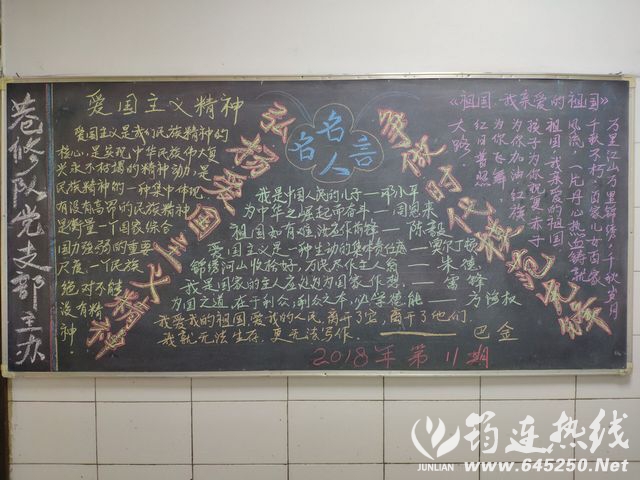 巷修队党支部主办
爱国主义精神
爱国主义是我们民族精神的
核心,是实现中华民族伟大复
兴永不枯竭的精神动力,是
民族精神的一种集中体现,
有没有高昂的民族精神,
是衡量一个国家综合
国力强弱的重要
尺度,一个民族
绝对不能
没有精
神.
弘扬爱国主义精神
名人名言
争做时代模范先锋
我是中国人民的儿子—邓小平
为中华之崛起而奋斗—周恩来
祖国如有难,汝应作前锋—陈毅
爱国主义是一种生动的集体责任感—
锦绣河山收拾好,万民尽作主人翁—朱德
我是国家的主人应为国家作想.—雷锋
为国之道,在于利众,利众之本,必举
我爱我的祖国,爱我的人民,离开了它,离开了他们,
我就无法生存,更无法写作.——巴金
2018年第11期
《祖国,我亲爱的祖国》
万里江山万里锦绣,千秋
千秋不朽,百家儿女百家
风流,一片丹心热血铸就
祖国,我亲爱的祖国
孩子为你祝寿,赤子
为你加油,红旗
为你飞舞,
红日普照
大路,
筠连热线
JUNLIAN
www.645250.Net